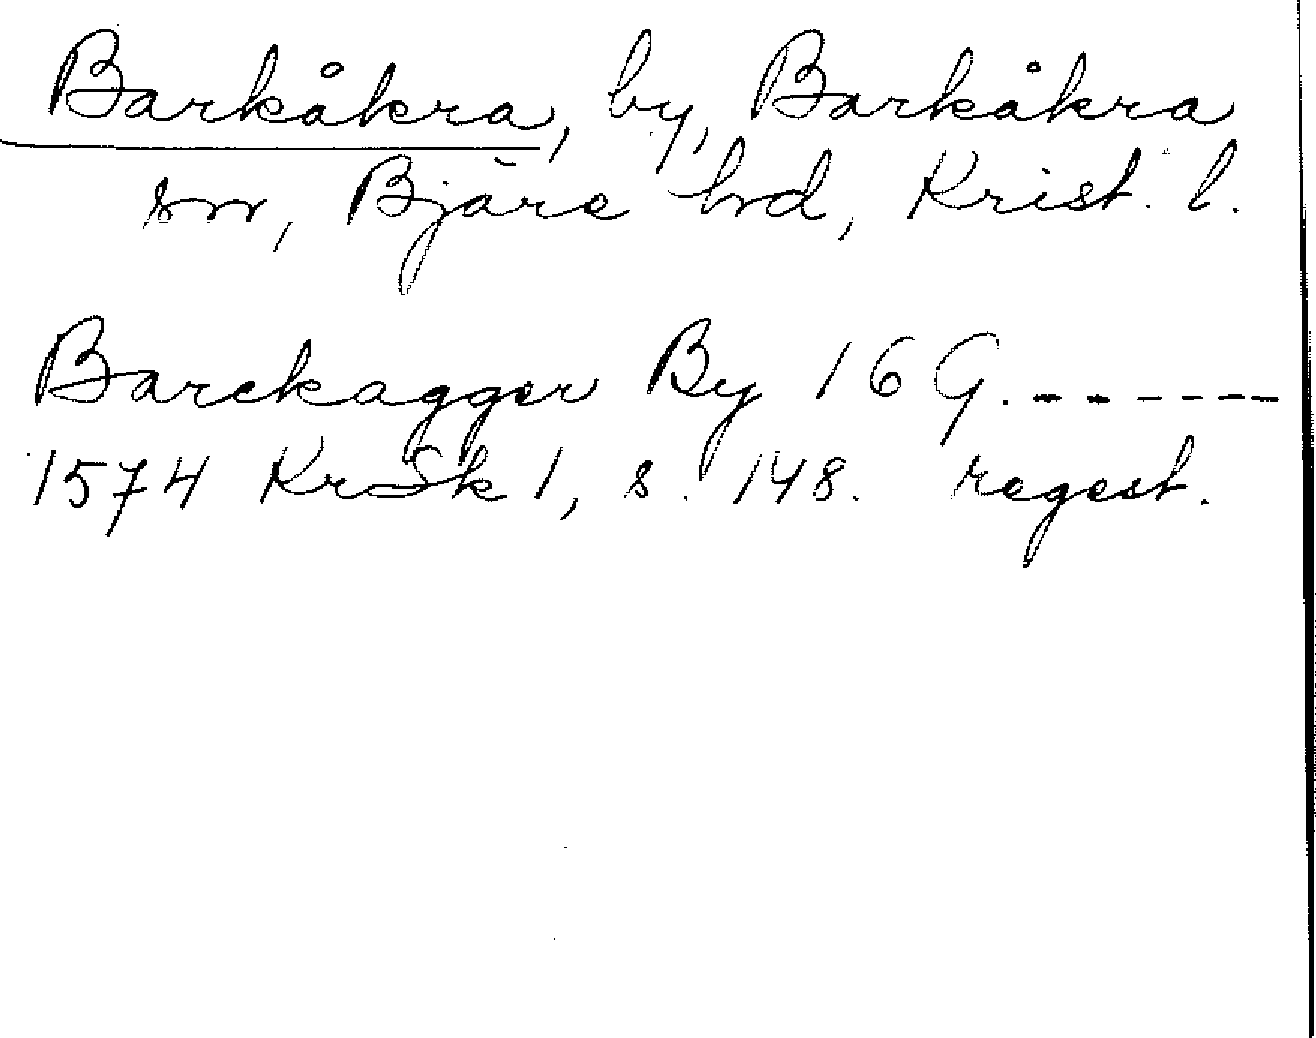 Barkåkra, by, Barkåkra
sn, Bjäre hd, Krist. l.
Barckagger By 16 G.------
1574 KrSk 1, s. 148. regest.